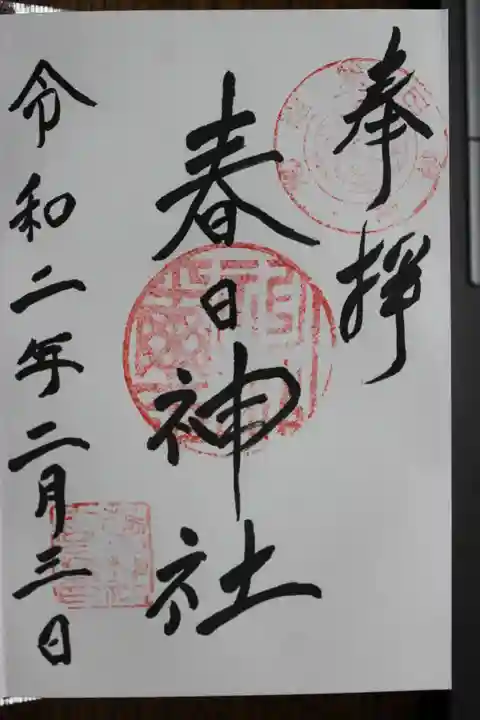 奉拝
春日神社
令和二年二月三日